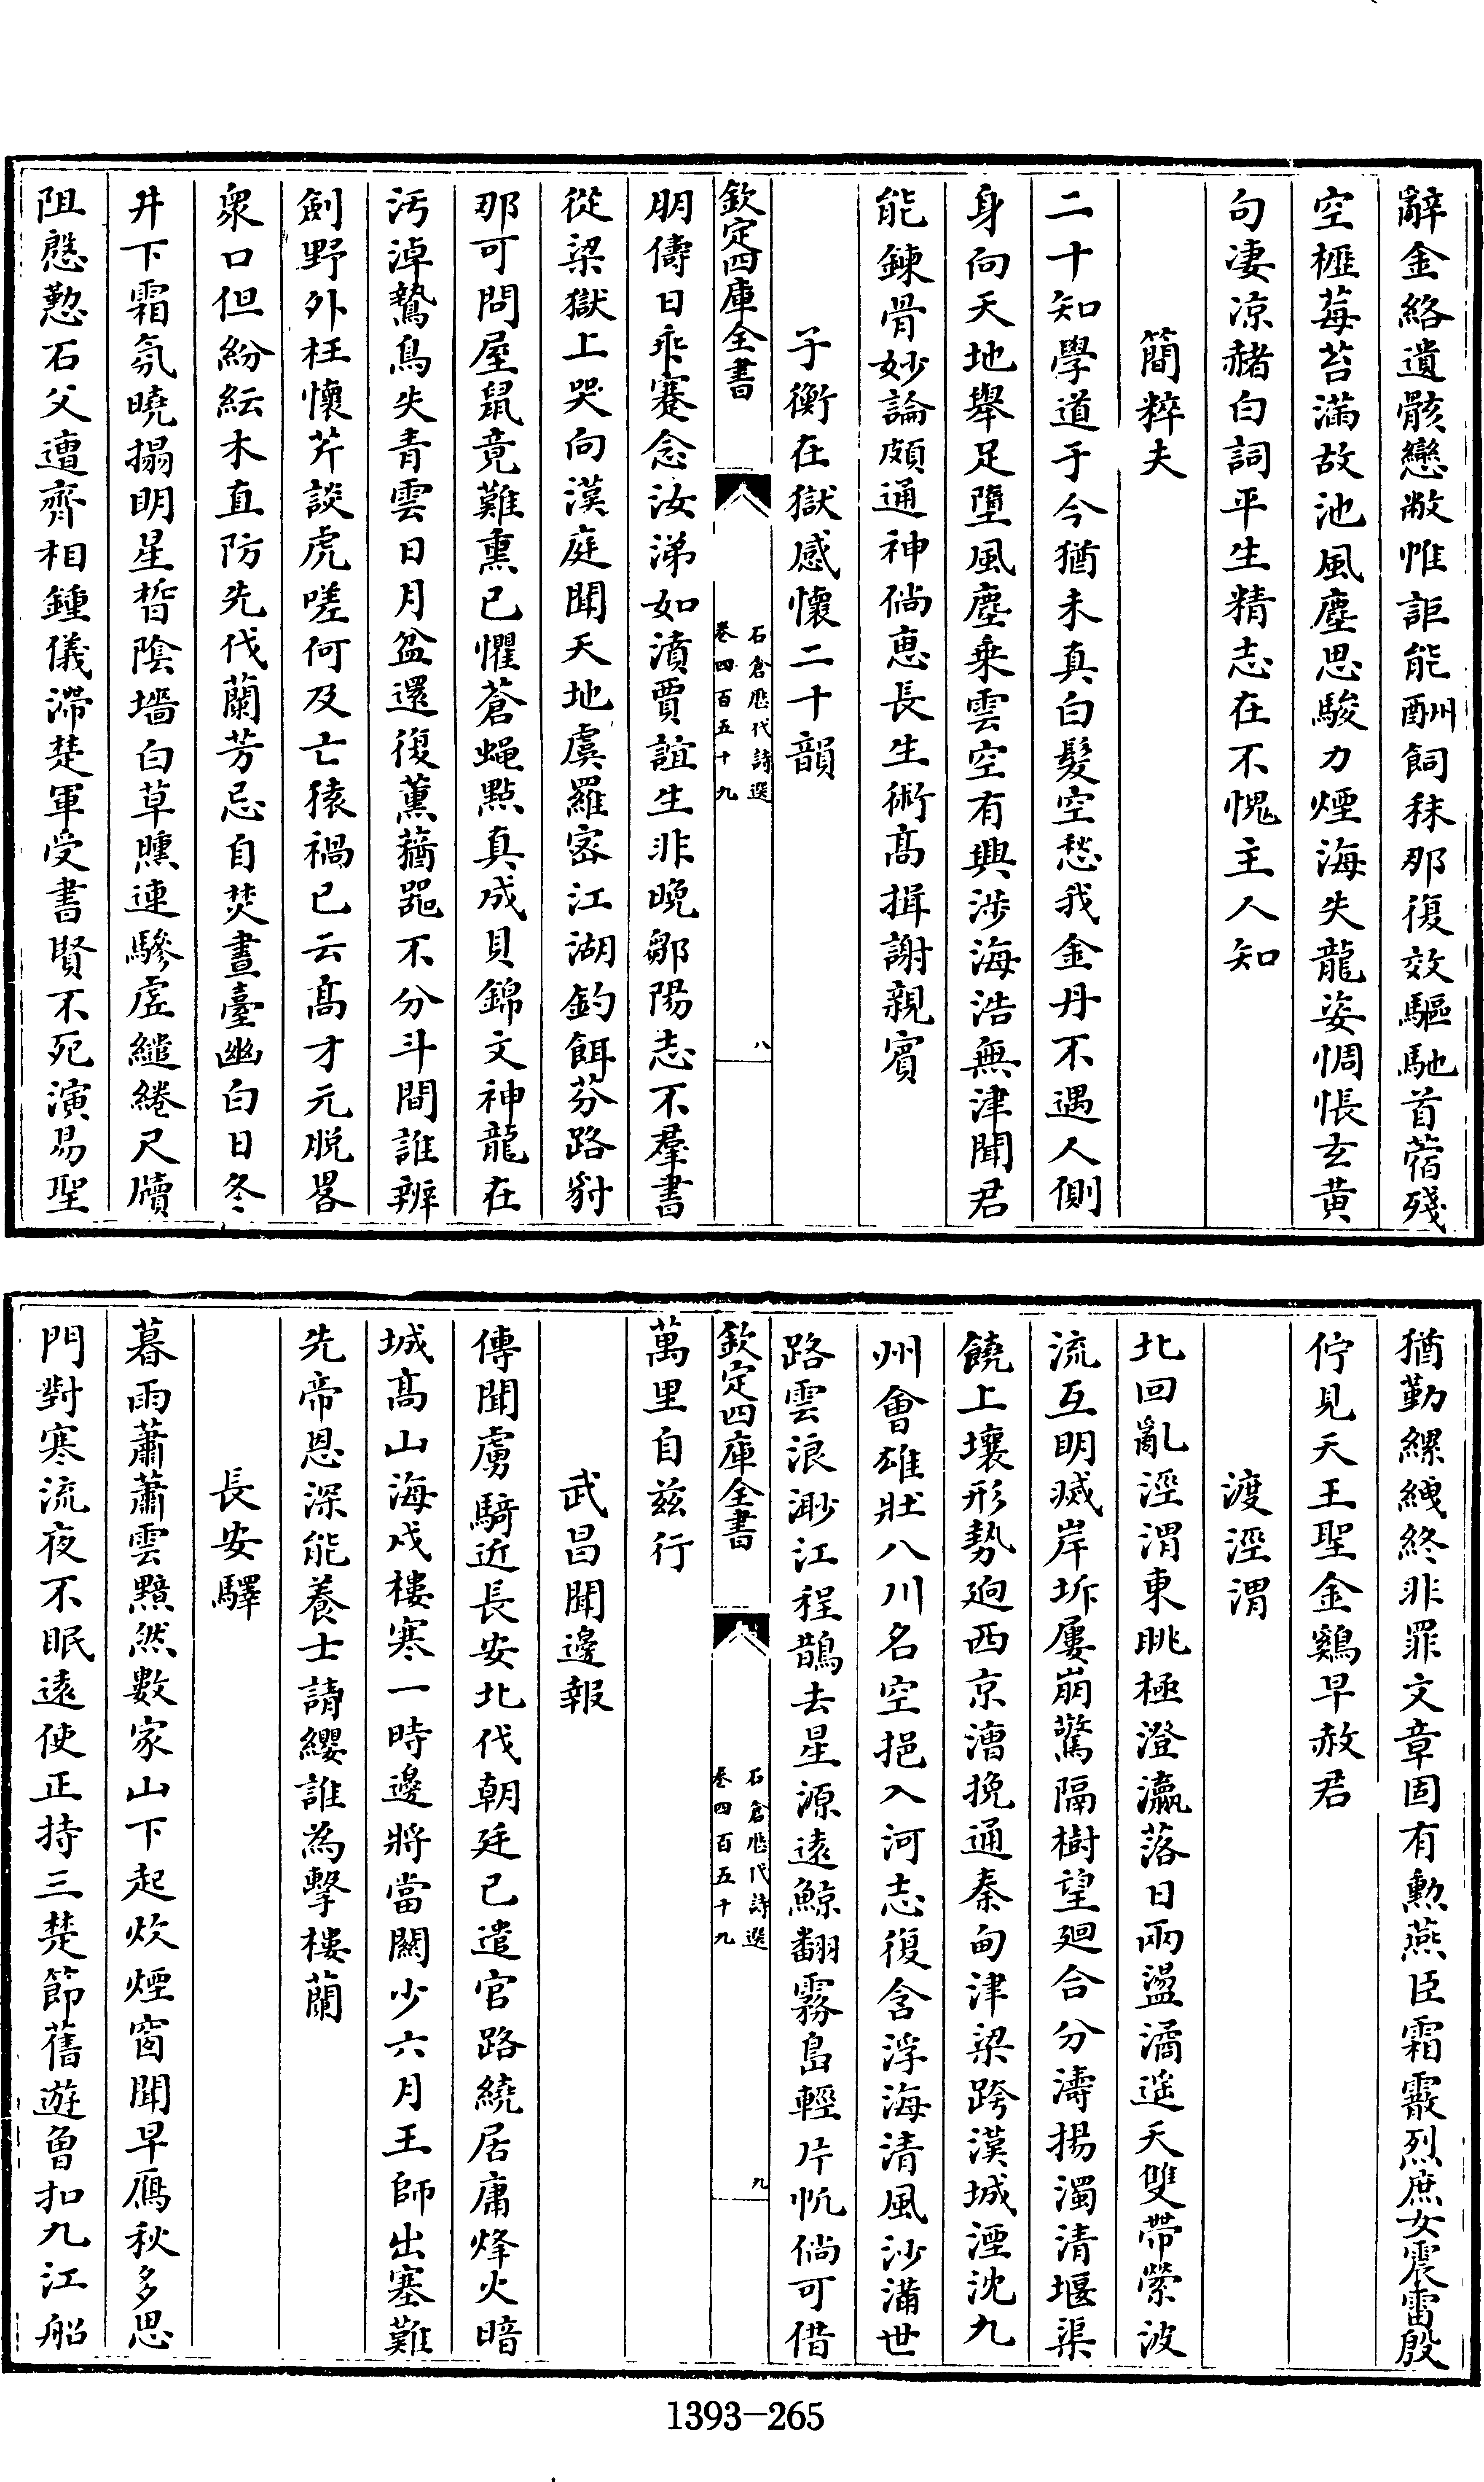 辭金絡遺骸戀敝帷詎能酬飼秣那復效驅馳首蓿殘
空櫪莓苔滿故池風塵思駿力煙海失龍姿惆悵玄黄
句凄凉赭白詞平生精志在不愧主人知
簡粹夫
二十知學道于今猶未真白髮空愁我金丹不遇人側
身向天地舉足墮風塵乗雲空有興涉海浩無津聞君
能鍊骨妙論頗通神倘惠長生術高揖謝親賓
子衡在獄感懷二十韻
欽定四庫全書
石倉歷代詩選
卷四百五十九
八
朋儔日乖蹇念汝涕如濆賈誼生非晚鄒陽志不羣書
從梁獄上哭向漢庭聞天地虞羅宻江湖釣餌芬路豺
那可問屋鼠竟難熏已懼蒼蠅點真成貝錦文神龍在
汚淖鷙鳥失青雲日月盆還復薫蕕器不分斗間誰辨
劍野外枉懷芹談虎嗟何及亡猿禍已云高才元脱畧
衆口但紛紜木直防先伐蘭芳忌自焚晝臺幽白日冬
井下霜氛曉搨明星晳陰墻白草曛連驂虚繾綣尺牘
阻慇懃石父遭齊相鍾儀滯楚軍受書賢不死演易聖
猶勤縲絏終非罪文章固有勲燕臣霜霰烈庶女震雷殷
佇見天王聖金鷄早赦君
渡涇渭
北回亂涇渭東眺極澄瀛落日兩盪潏遥天雙帶縈波
流互明滅岸圻屢崩驚隔樹望迴合分濤揚濁清堰渠
饒上壤形勢廹西京漕挽通秦甸津梁跨漢城湮沈九
州會雄壯八川名空挹入河志復含浮海清風沙滿世
路雲浪渺江程鵲去星源逺鯨翻霧島輕片帆倘可借
欽定四庫全書
石倉歷代詩選
卷四百五十九
九
萬里自兹行
武昌聞邊報
傳聞虜騎近長安北伐朝廷已遣官路繞居庸烽火暗
城高山海戍樓寒一時邊將當闗少六月王師出塞難
先帝恩深能養士請纓誰為擊樓蘭
長安驛
暮雨蕭蕭雲黯然數家山下起炊煙窗聞早鴈秋多思
門對寒流夜不眠逺使正持三楚節舊遊曽扣九江船
1393-265